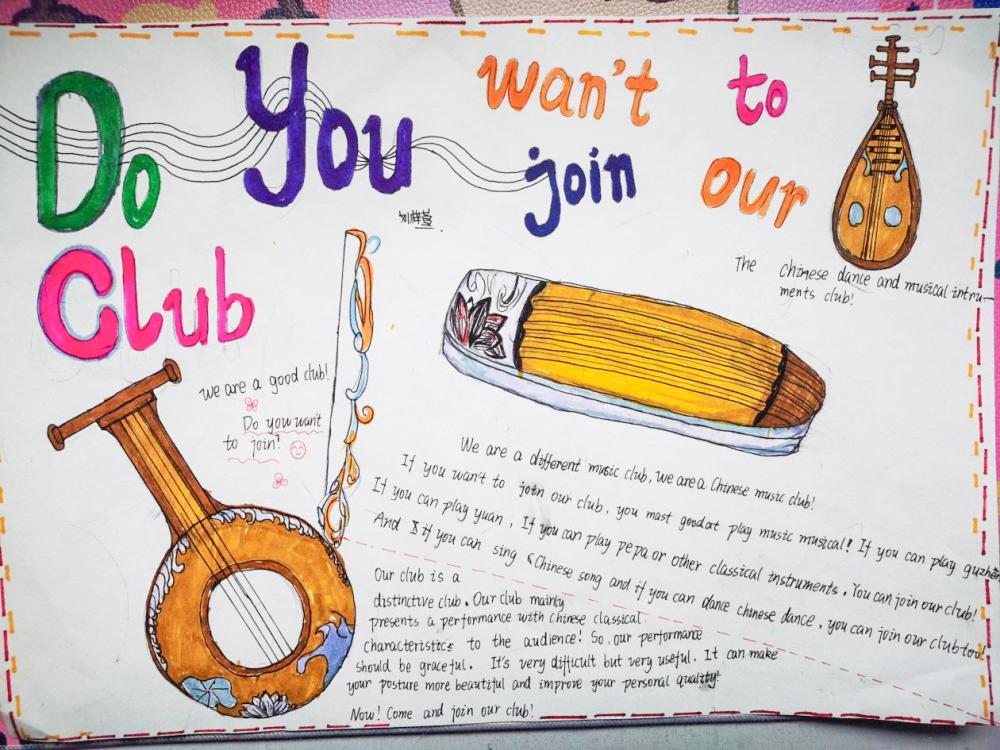 Do You wan't to
join our
Club
The chinese dance and musical intru-
ments club!
we are a good club!
Do you want
to join?
We are a different music club, we are a Chinese music club!
If you wan't to join our club, you mast good at play music musical! If you can play guzhen
If you can play yuan, If you can play pepa or other classical instruments. You can join our club!
And if you can sing Chinese song and if you can dance chinese dance, you can join our club too!
Our club is a
distinctive club. Our club mainly
presents a performance with chinese classical
characteristics to the audience! So, our performance
should be graceful. It's very difficult but very useful. It can make
your posture more beautiful and improve your personal quality!
Now! Come and join our club!